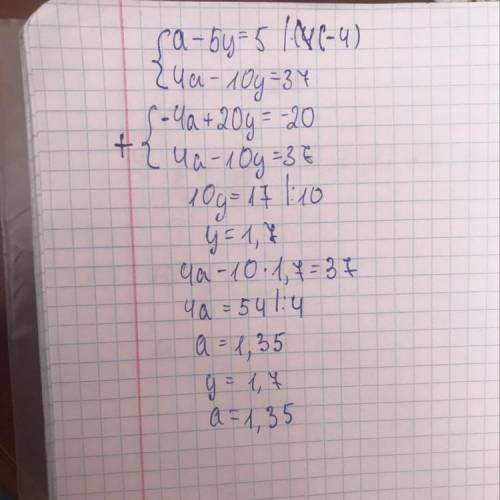 {a - 5y = 5 |·(-4)
4a - 10y = 37
+ {-4a + 20y = -20
4a - 10y = 37
10y = 17 |:10
y = 1,7
4a - 10 · 1,7 = 37
4a = 54 |:4
a = 1,35
y = 1,7
a = 1,35